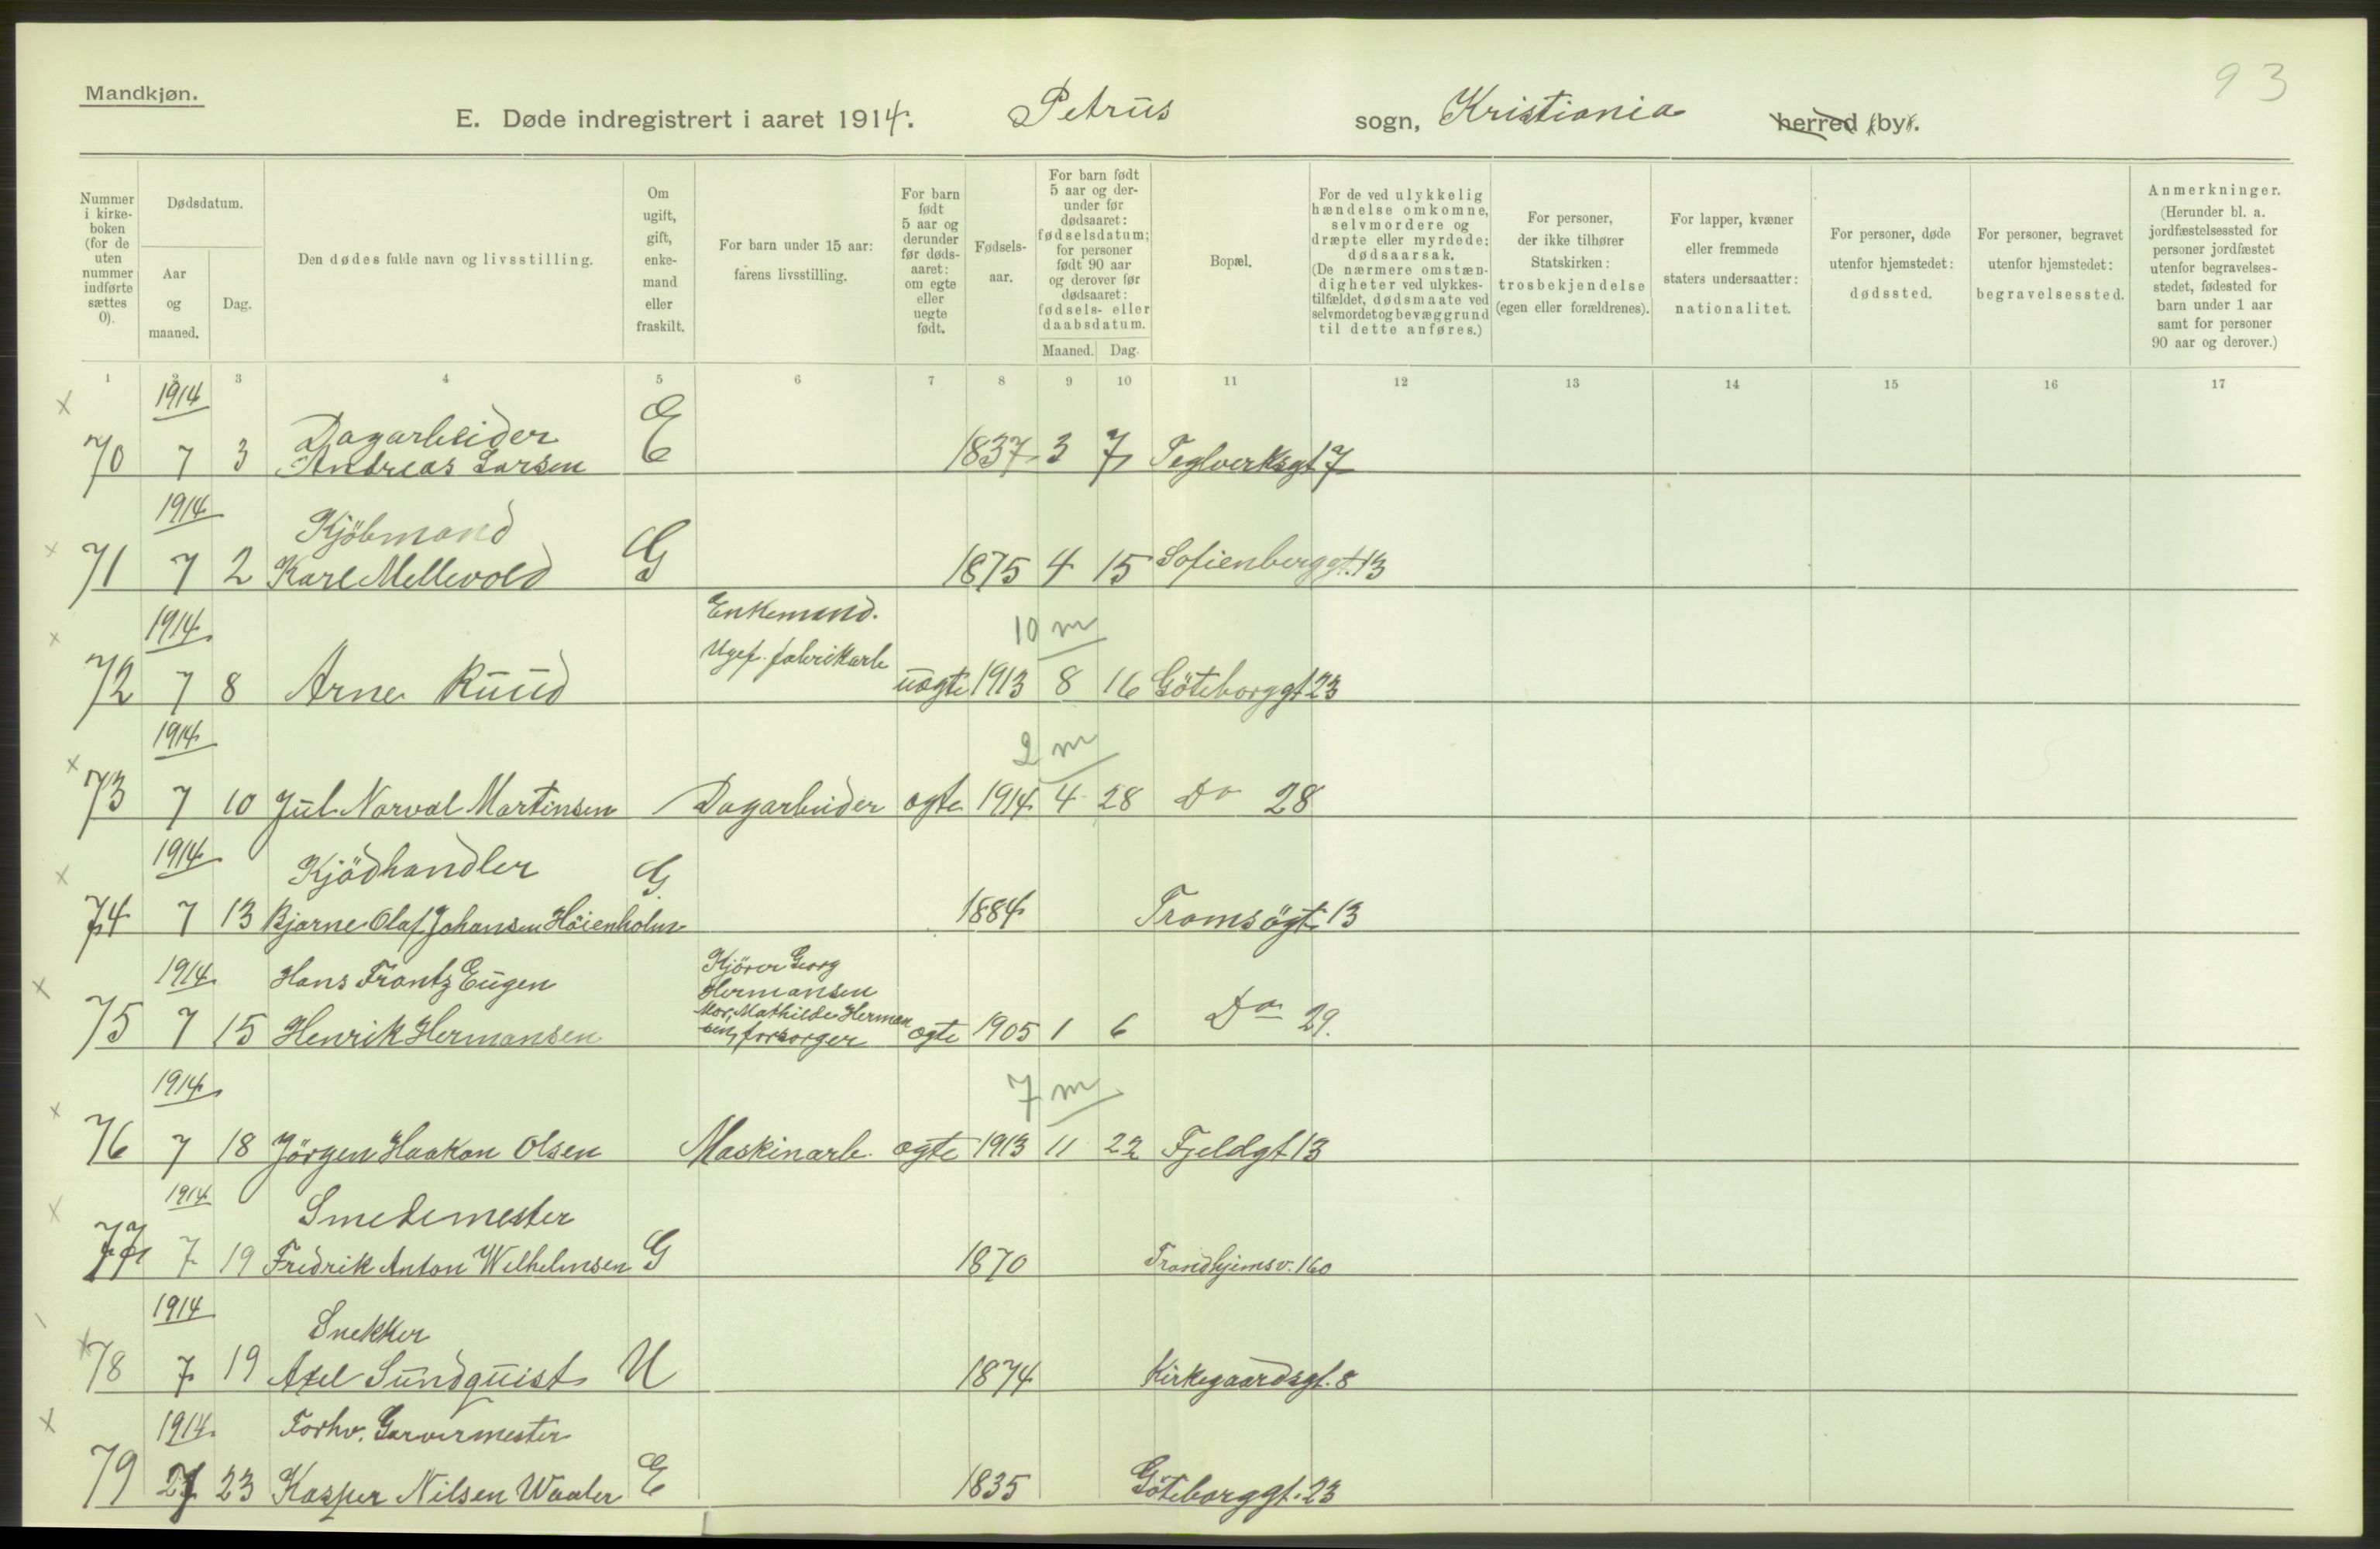 93
Mandkjøn.
E. Døde indregistrert i aaret 1914. Petrus sogn, Kristiania herred (by).
Nummer i kirkeboken (for de uten nummer indførte sættes 0).
Dødsdatum.
Aar og maaned.
Dag.
Den dødes fulde navn og livsstilling.
Om ugift, gift, enkemand eller fraskilt.
For barn under 15 aar: farens livsstilling.
For barn født 5 aar og derunder før dødsaaret: om egte eller uegte født.
Fødselsaar.
For barn født 5 aar og derunder før dødsaaret: fødselsdatum; for personer født 90 aar og derover før dødsaaret: fødsels- eller daabsdatum.
Maaned. Dag.
Bopæl.
For de ved ulykkelig hændelse omkomne, selvmordere og dræpte eller myrdede: dødsaarsak. (De nærmere omstændigheter ved ulykkestilfældet, dødsmaate ved selvmordet og bevæggrund til dette anføres.)
For personer, der ikke tilhører Statskirken: trosbekjendelse (egen eller forældrenes).
For lapper, kvæner eller fremmede staters undersaatter: nationalitet.
For personer, døde utenfor hjemstedet: dødssted.
For personer, begravet utenfor hjemstedet: begravelsessted.
Anmerkninger. (Herunder bl. a. jordfæstelsessted for personer jordfæstet utenfor begravelsesstedet, fødested for barn under 1 aar samt for personer 90 aar og derover.)
1 2 3 4 5 6 7 8 9 10 11 12 13 14 15 16 17
x 1914
Dagarbeider E
70 7 3 Andreas Larsen 1837 3 7 Teglverksgt 7
1914
Kjöbmand
x 71 7 2 Karl Mellevold G 1875 4 15 Sofienberggt. 13
1914 Enkemand. 10 m
x Ugef. fabrikarb
72 7 8 Arne Ruud uægte 1913 8 16 Göteborggt 23
1914 2 m
x 73 7 10 Jul. Narval Martinsen Dagarbeider ægte 1914 4 28 Do 28
1914
x Kjödhandler G
74 7 13 Bjarne Olaf Johansen Höienholm 1884 Tromsögt. 13
1914 Hans Frantz Eugen Kjörer Georg
x Hermansen
Mor, Mathilde Herman
75 7 15 Henrik Hermansen sen, forsorger ægte 1905 1 6 Do 29.
1914 7 m
x 76 7 18 Jörgen Haakon Olsen Maskinarb. ægte 1913 11 22 Fjeldgt 13
1914
x Smedemester
77 7 19 Fredrik Anton Wilhelmsen G 1870 Trondhjemsv. 160
1914
Snekker
x 78 7 19 Axel Sundquist U 1874 Kirkegaardsgt. 8
x 1914 Forhv. Garvermester
79 7 23 Kasper Nilsen Waaler E 1835 Göteborggt. 23